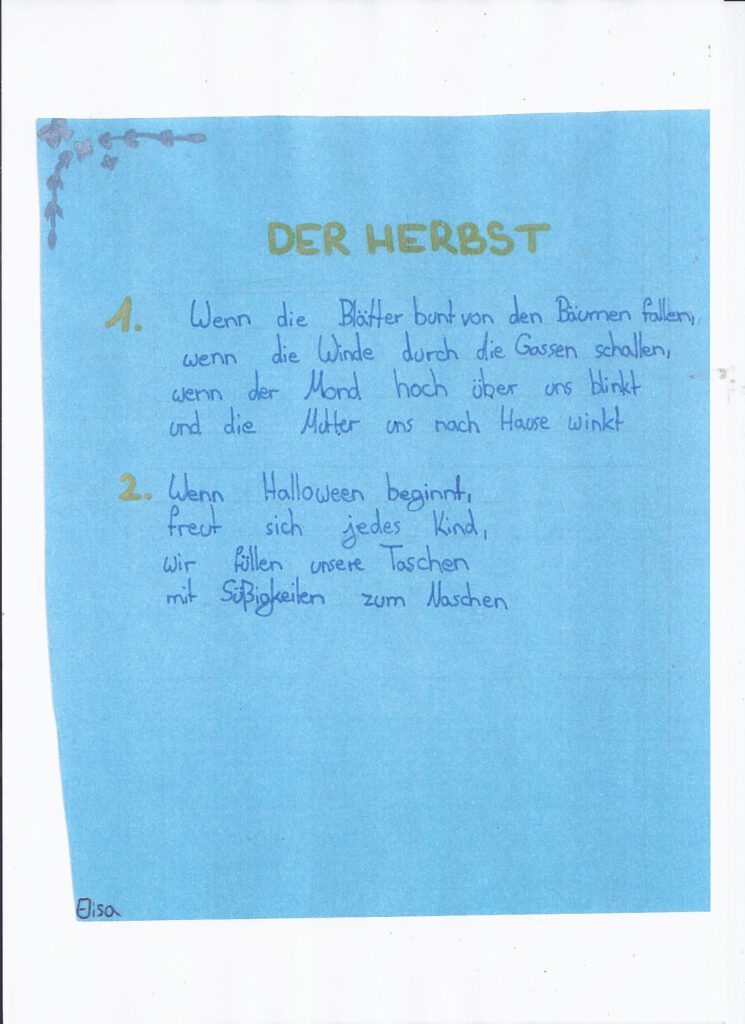 DER HERBST
1. Wenn die Blätter bunt von den Bäumen fallen,
wenn die Winde durch die Gassen schallen,
wenn der Mond hoch über uns blinkt
und die Mutter uns nach Hause winkt
2. Wenn Halloween beginnt,
freut sich jedes Kind,
wir füllen unsere Taschen
mit Süßigkeiten zum Naschen
Elisa